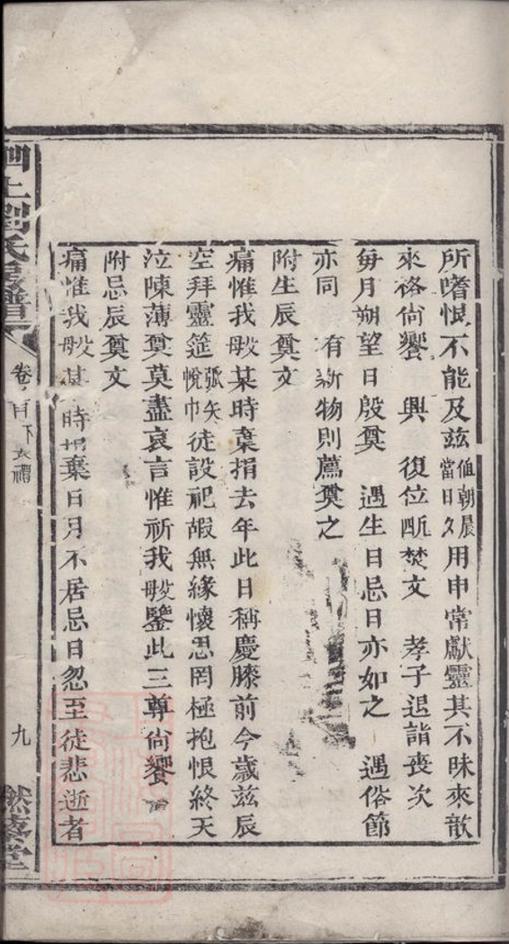 所嗜恨不能及茲值朝晨當日夕用申常獻靈其不昧來歆
來格尙饗　興　復位㸃焚文　孝子退詣喪次
每月朔望日殷奠　遇生日忌日亦如之　遇俗節
亦同　有新物則薦奠之
附生辰奠文
痛惟我母某時棄捐去年此日稱慶膝前今歲茲辰
空拜靈筵弧矢帨巾徒設祀嘏無緣懷思罔極抱恨終天
泣陳薄奠莫盡哀言惟祈我母鑒此三尊尙饗
附忌辰奠文
痛惟我母某時捐棄日月不居忌日忽至徒悲逝者
泗上劉氏 譜
卷首下 喪禮
九